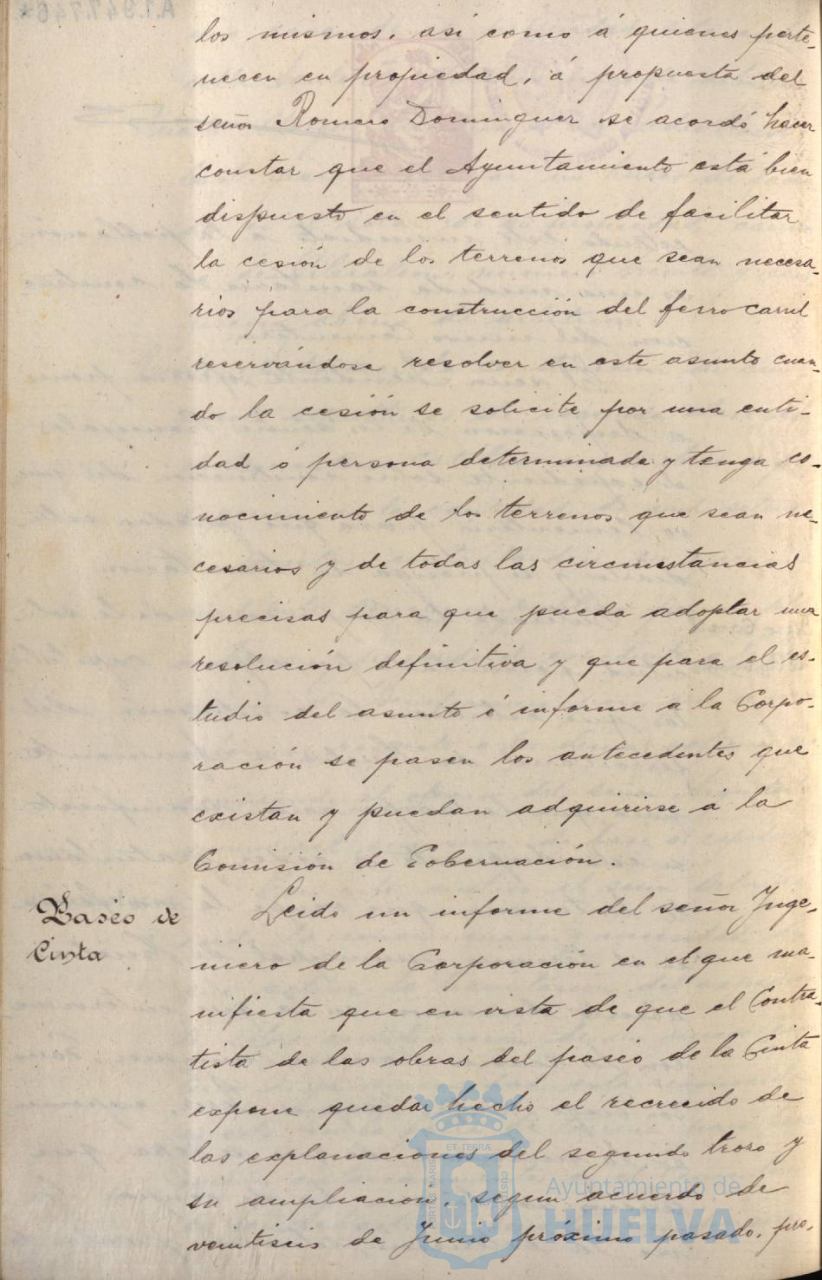 los mismos, así como á quienes perte-
necen en propiedad, á propuesta del
señor Romero Dominguez se acordó hacer
constar que el Ayuntamiento está bien
dispuesto en el sentido de facilitar
la cesión de los terrenos que sean necesa-
rios para la construcción del ferrocarril
reservándose resolver en este asunto cuan-
do la cesión se solicite por una enti-
dad ó persona determinada y tenga co-
nocimiento de los terrenos que sean ne-
cesarios y de todas las circunstancias
precisas para que pueda adoptar una
resolución definitiva y que para el es-
tudio del asunto é informe á la Corpo-
ración se pasen los antecedentes que
existan y puedan adquirirse á la
Comisión de Gobernación.
Paseo de
Cinta
Leido un informe del señor Inge-
niero de la Corporación en el que ma-
nifiesta que en vista de que el Contra-
tista de las obras del paseo de la Cinta
expone quedar hecho el recrecido de
las explanaciones del segundo trozo y
su ampliación, segun acuerdo de
veintiseis de Junio próximo pasado, pro-
Ayuntamiento de
HUELVA